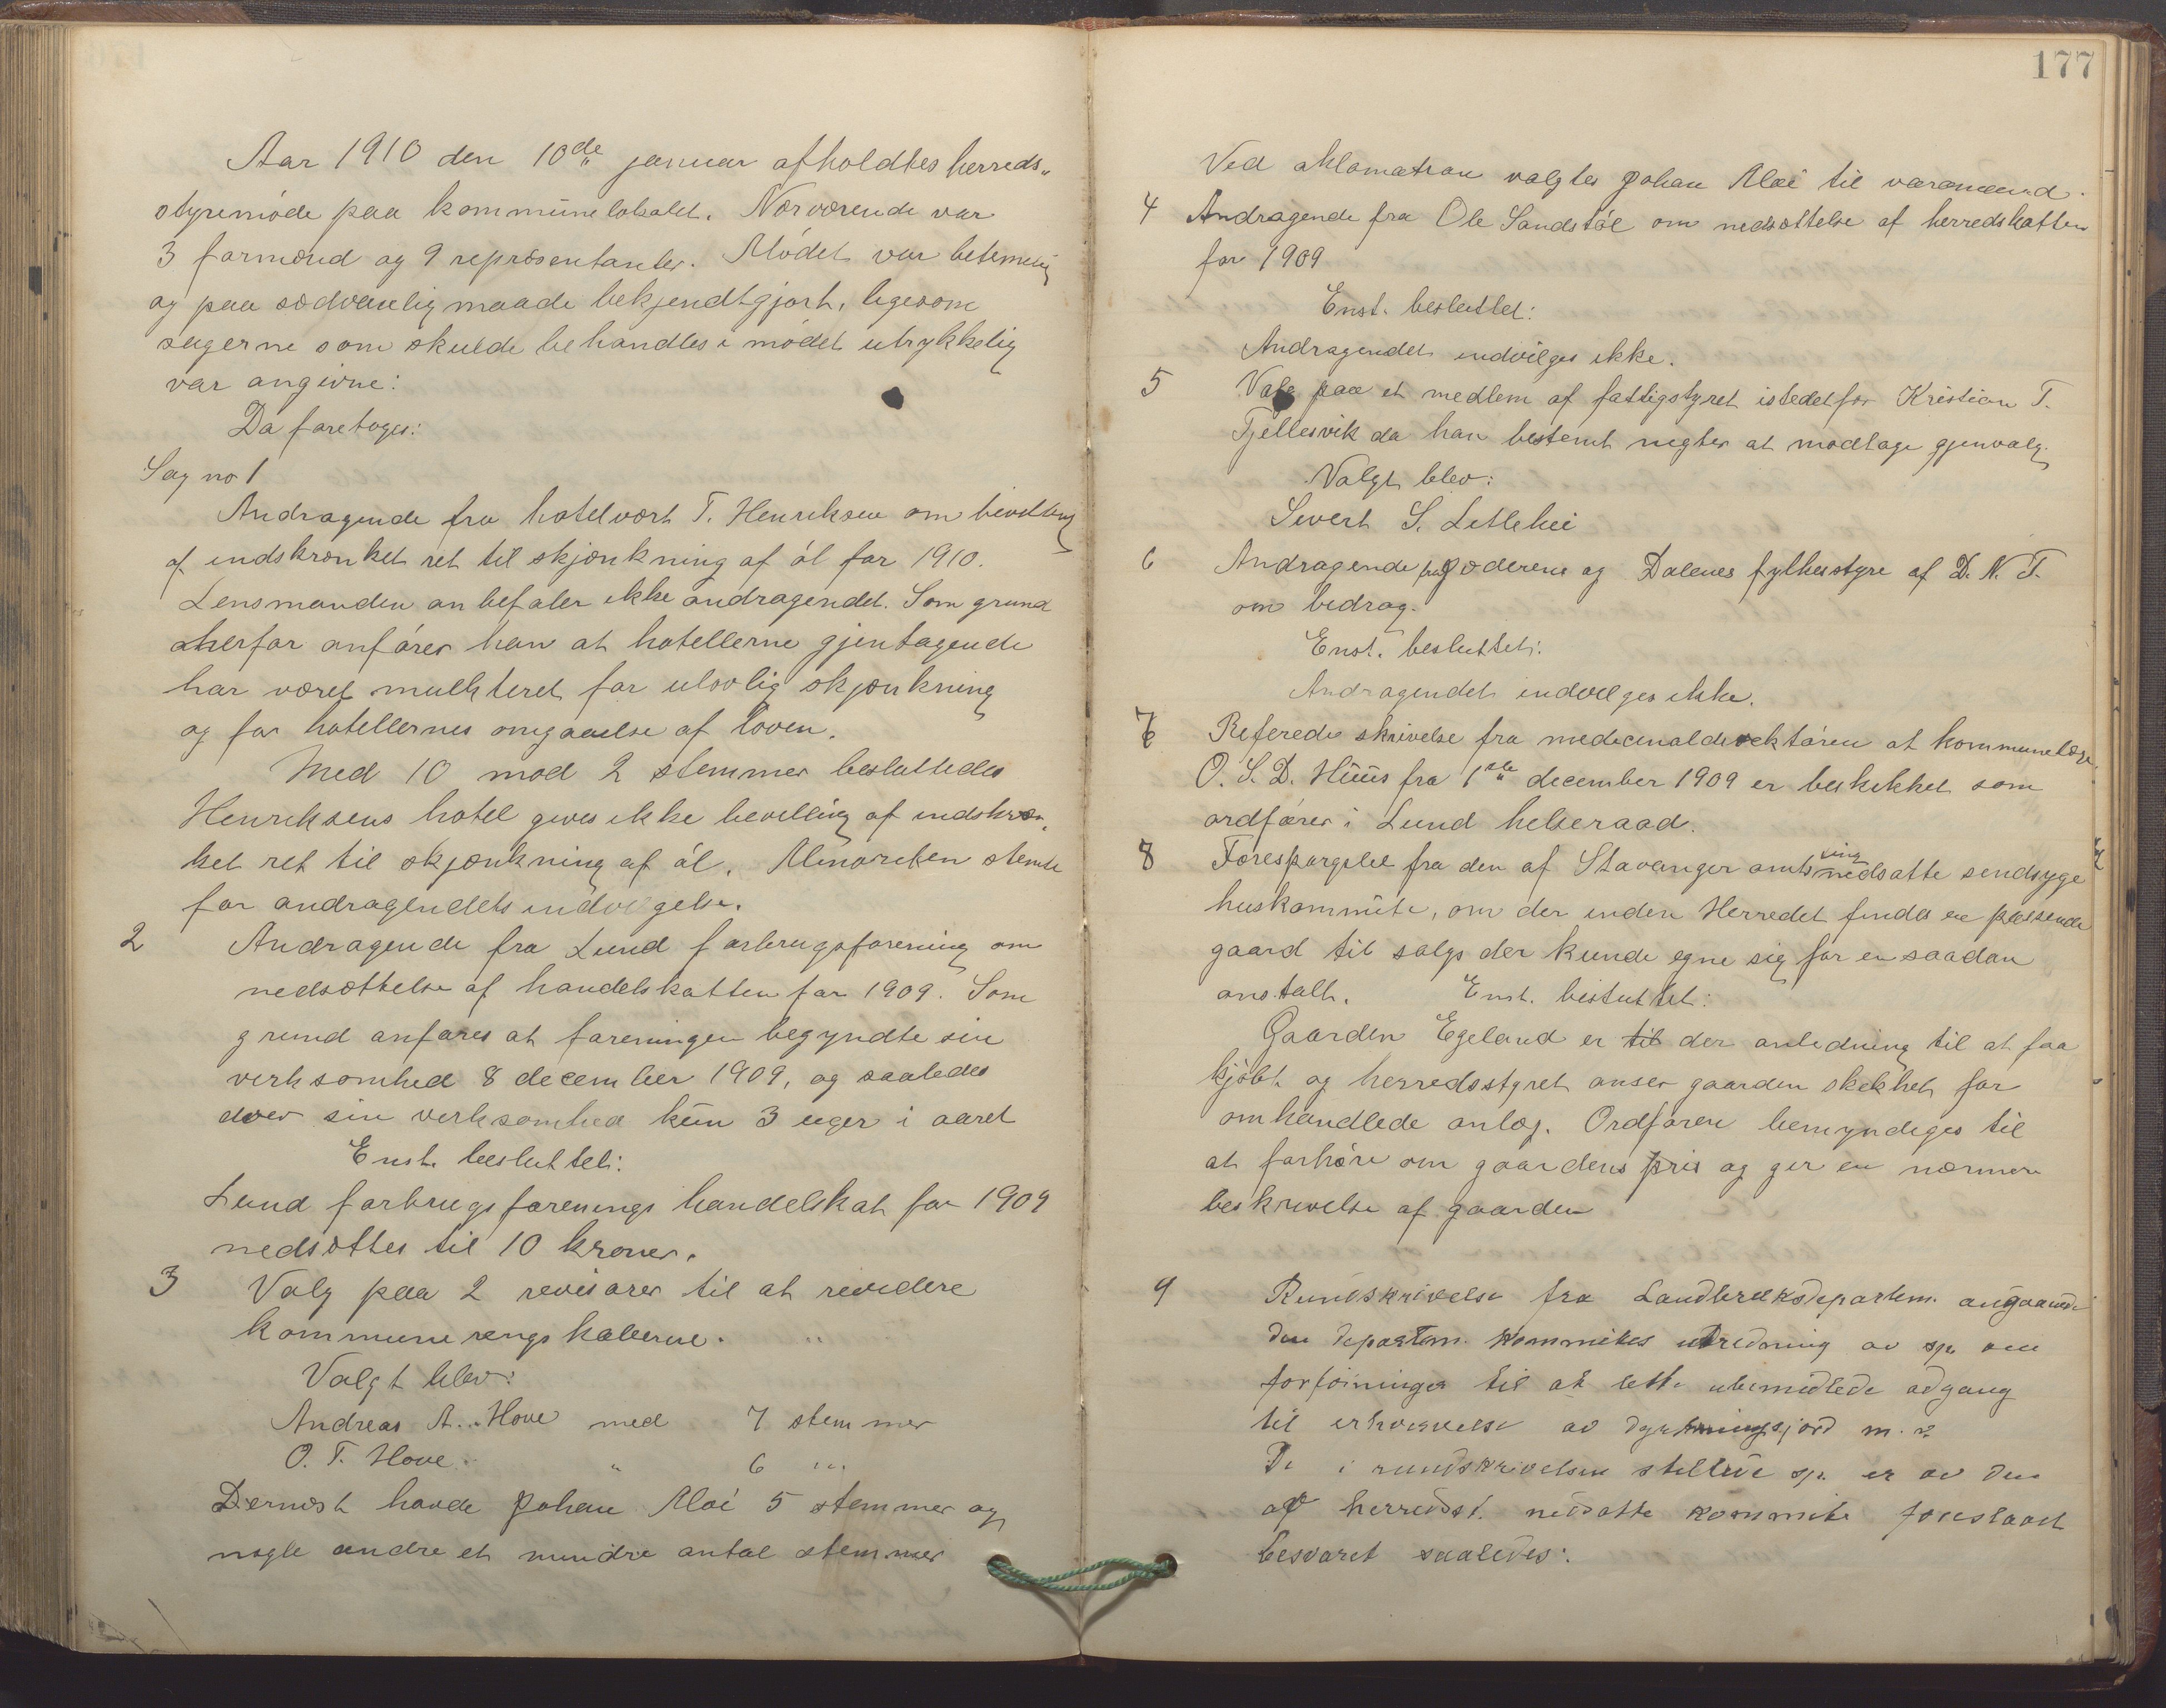 Aar 1910 den 10de januar afholdtes herreds„
styremöde paa kommunelokalet. Nærværende var
3 formænd og 9 repræsentanter. Mödet var betimelig
og paa sædvanlig maade bekjendtgjort, ligesom
sagerne som skulde behandles i mödet utrykkelig
var angivne:
Da foretoges:
Sag no 1
Andragende fra hotelvært T. Henriksen om bevilling
af indskrænket ret til skjænkning af öl for 1910.
Lensmanden anbefaler ikke andragendet. Som grund
herfor anförer han at hotellerne gjentagende
har været mulkteret for ulovlig skjænkning
og for hotellernes omgaaelse af loven.
Med 10 mod 2 stemmer besluttedes
Henriksens hotel gives ikke bevilling af indskræn„
ket ret til skjænkning af öl. Minoriteten stemte
for andragendets indvilgelse.
2 Andragende fra Lund forbrugsforening om
nedsættelse af handelskatten for 1909. Som
grund anføres at foreningen begyndte sin
verksomhed 8 december 1909, og saaledes
drev sin verksomhed kün 3 uger i aaret
Enst. besluttet:
Lund forbrugsforenings handelskat for 1909
nedsættes til 10 kroner.
3 Valg paa 2 revisorer til at revidere
kommuneregnskaberne.
Valgt blev:
Andreas A. Hove med 7 stemmer
O. T. Hove „ 6 „
Dernæst havde Johan Moi 5 stemmer og
nogle andre et mindre antal stemmer
177
Ved aklamation valgtes Johan Moi til varamand.
4 Andragende fra Ole Sandstöl om nedsættelse af herredskatten
for 1909
Enst. besluttet:
Andragendet indvilges ikke.
5 Valg paa et medlem af fattigstyret istedetfor Kristian T.
Tjellesvik da han bestemt negter at modtage gjenvalg.
Valgt blev:
Sivert S. Litlehei
6 Andragende fra Jæderens og Dalenes fylkesstyre af D. N. T.
om bidrag.
Enst. besluttet:
Andragendet indvilges ikke.
7 Referedes skrivelse fra medicinaldirektören at kommunelæge
O. S. D. Hüüs fra 1ste december 1909 er beskikket som
ordförer i Lund helseraad.
8 Forespørgsel fra den af Stavanger amtsting nedsatte sindsyge
huskommite, om der inden Herredet findes en passende
gaard til salgs der kunde egne sig for en saadan
anstalt. Enst. besluttet:
Gaarden Egeland er til der anledning til at faa
kjöbt og herredsstyret anser gaarden skikket for
omhandlede anlæg. Ordføren bemyndiges til
at forhøre om gaardens pris og gir en nærmere
beskrivelse af gaarden
9 Rundskrivelse fra Landbruksdepartem. angaaende
den departem. kommites utredning av sp. om
forföininger til at lette ubemidlede adgang
til erhvervelse av dyrkningsjord m. v.
De i rundskrivelsen stillede sp. er av den
af herredst. nedsatte kommite foreslaaet
besvaret saaledes: